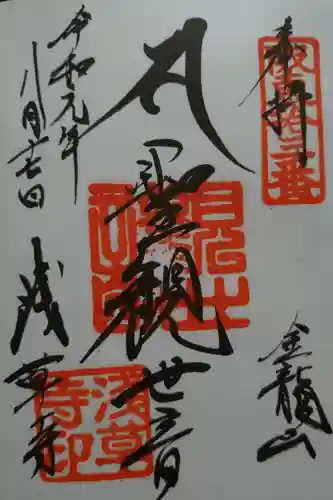 奉拝
坂東拾三番
金龍山
聖観世音
令和元年
八月十七日
浅草寺
浅草
寺印